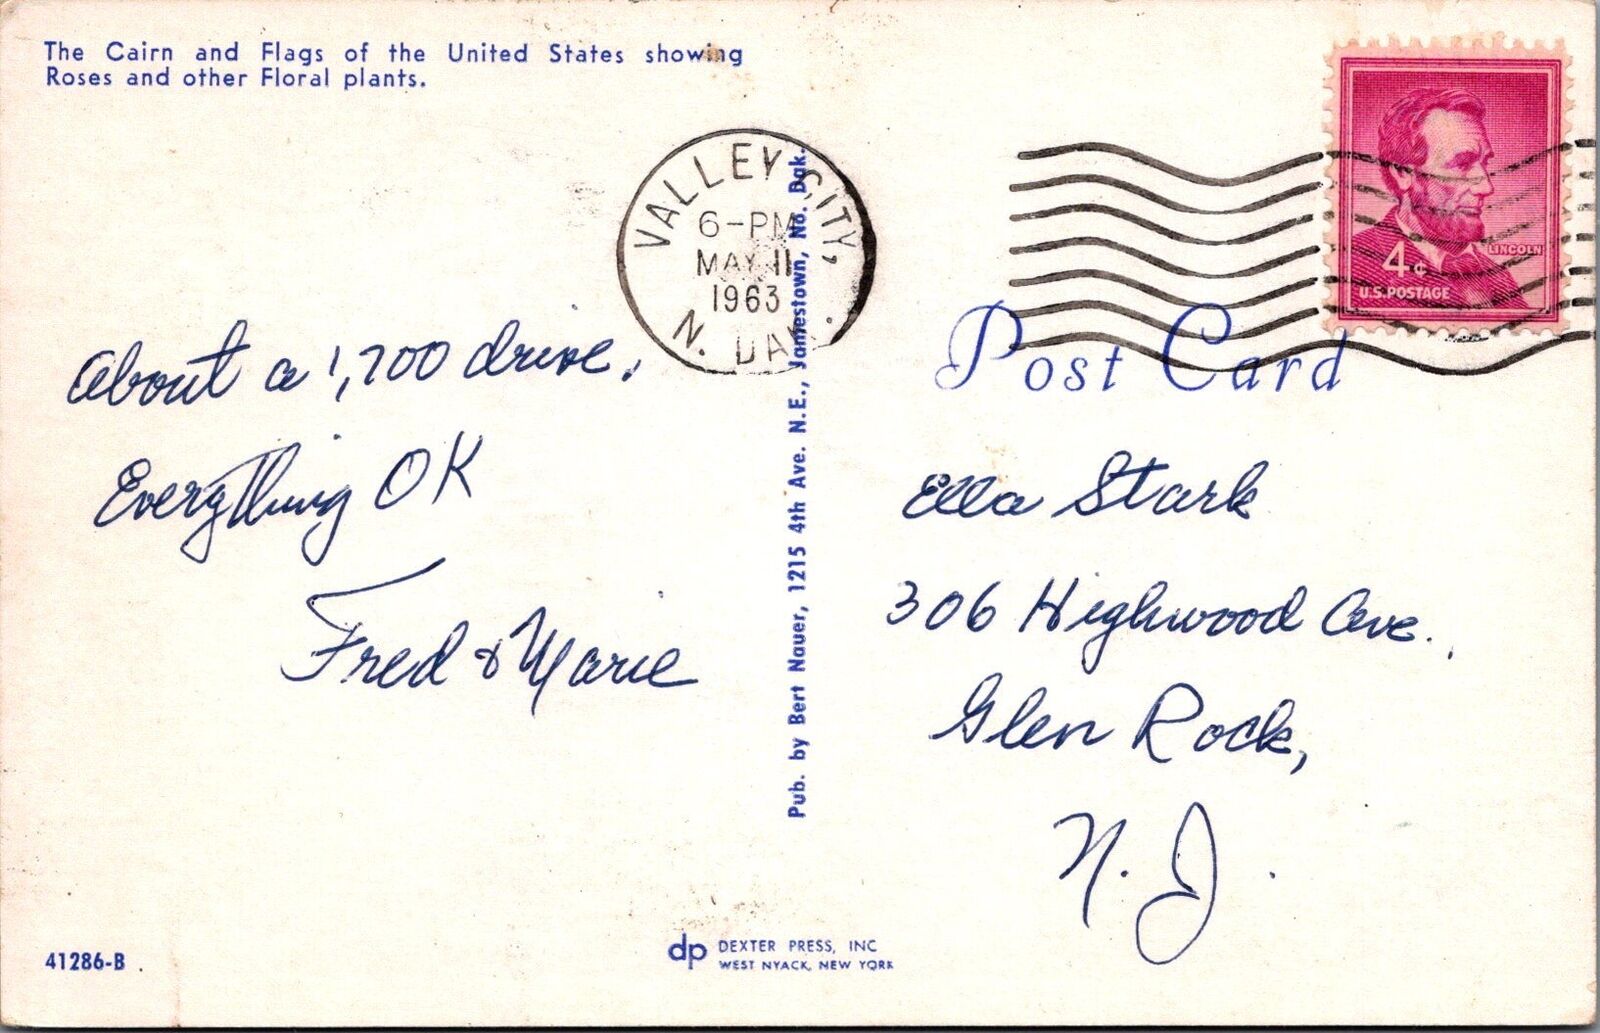 The Cairn and Flags of the United States showing
Roses and other Floral plants.
VALLEY CITY,
6-PM
MAY 11
1963
N. DAK.
LINCOLN
4¢
U.S. POSTAGE
Post Card
About a 1,700 drive.
Everything OK
Fred & Marie
Pub. by Bert Nauer, 1215 4th Ave. N.E., Jamestown, No. Dak.
Ella Stark
306 Highwood Ave.,
Glen Rock,
N. J.
41286-B
dp DEXTER PRESS, INC
WEST NYACK, NEW YORK